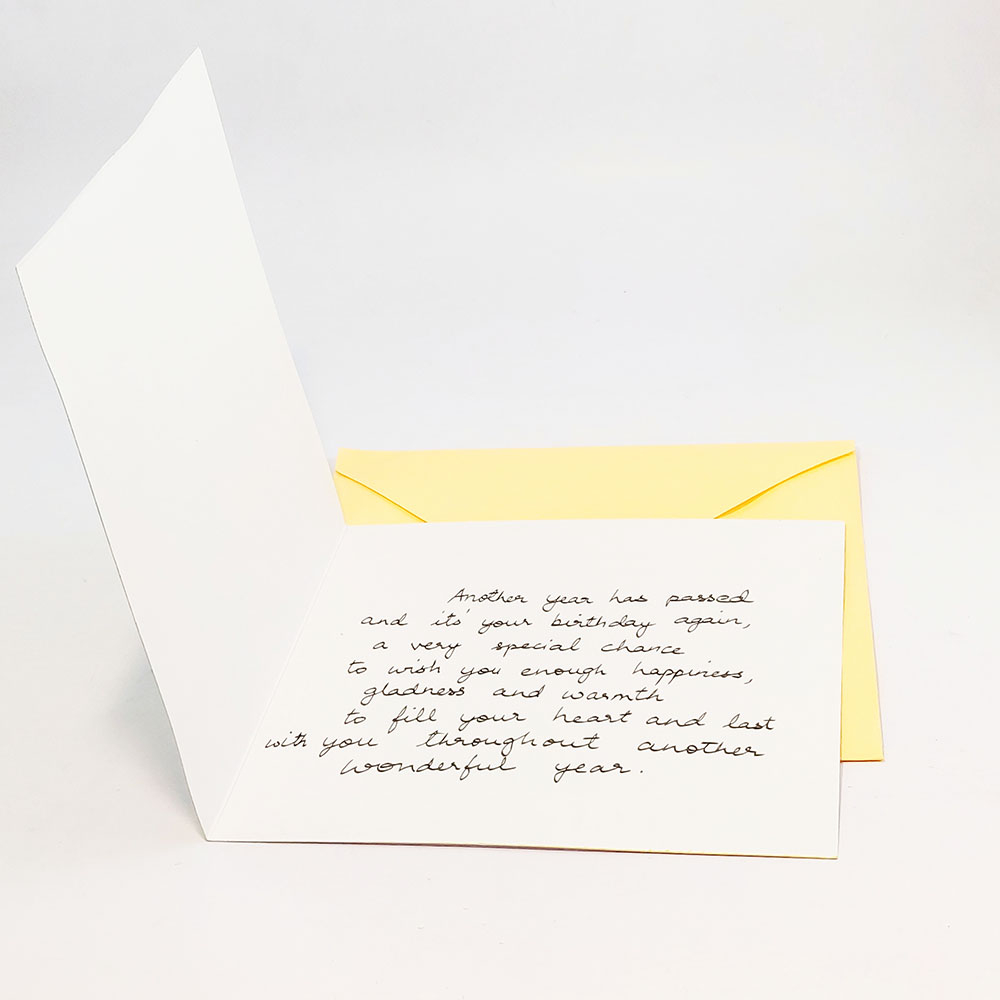 Another year has passed
and its' your birthday again,
a very special chance
to wish you enough happiness,
gladness and warmth
to fill your heart and last
with you throughout another
wonderful year.